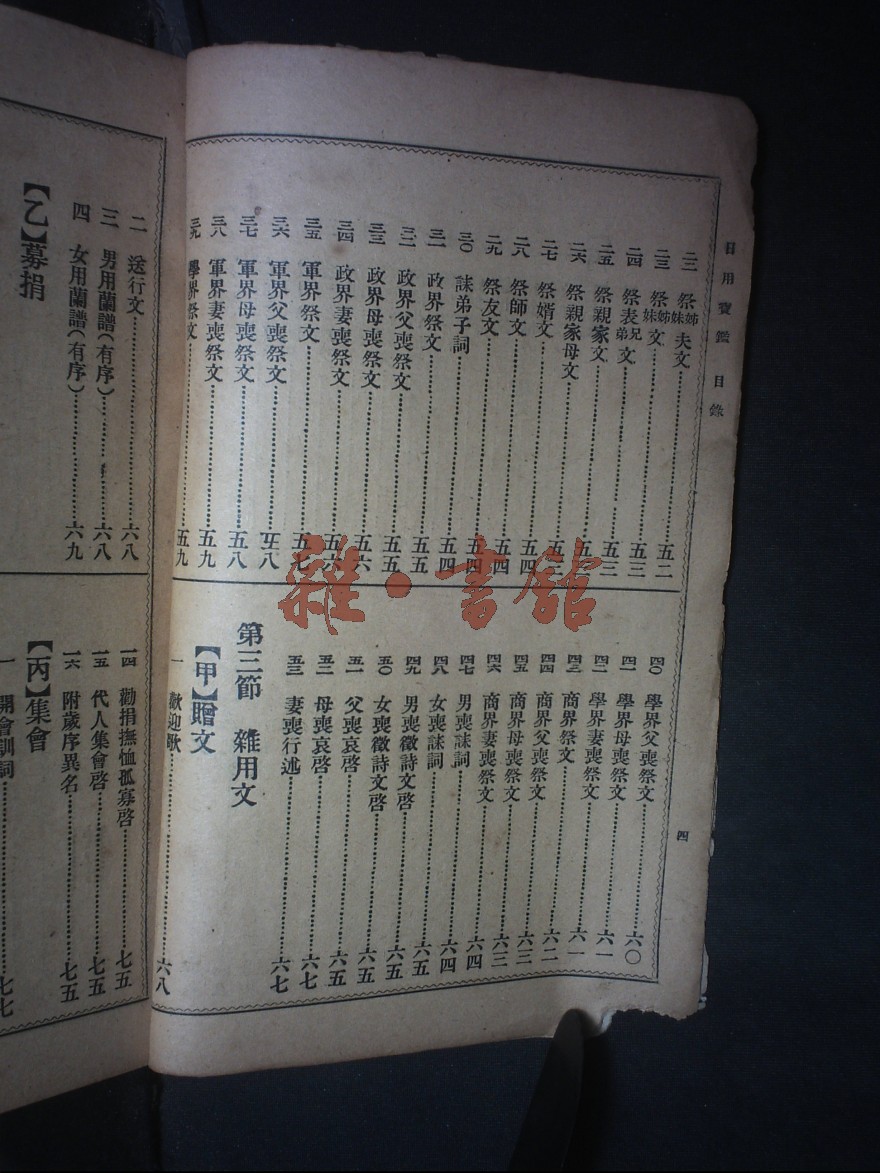 日用寶鑑 目錄
二二 祭姊妹夫文 五二
二三 祭姊妹文 五三
二四 祭表兄弟文 五三
二五 祭親家文
二六 祭親家母文
二七 祭婿文
二八 祭師文 五四
二九 祭友文 五四
三〇 誄弟子詞 五四
三一 政界祭文 五五
三二 政界父喪祭文 五五
三三 政界母喪祭文 五六
三四 政界妻喪祭文 五六
三五 軍界祭文 五七
三六 軍界父喪祭文 五八
三七 軍界母喪祭文 五八
三八 軍界妻喪祭文 五九
三九 學界祭文 五九
四〇 學界父喪祭文 六〇
四一 學界母喪祭文 六一
四二 學界妻喪祭文 六一
四三 商界祭文 六二
四四 商界父喪祭文 六三
四五 商界母喪祭文 六三
四六 商界妻喪祭文 六四
四七 男喪誄詞 六四
四八 女喪誄詞 六五
四九 男喪徵詩文啓 六五
五〇 女喪徵詩文啓 六五
五一 父喪哀啓 六五
五二 母喪哀啓 六七
五三 妻喪行述 六七
第三節 雜用文
【甲】贈文
一 歡迎歌 六八
四
二 送行文 六八
三 男用蘭譜(有序) 六八
四 女用蘭譜(有序) 六九
【乙】募捐
一四 勸捐撫恤孤寡啓 七五
一五 代人集會啓 七五
一六 附歲序異名 七五
【丙】集會
一 開會訓詞 七七
雜·書館